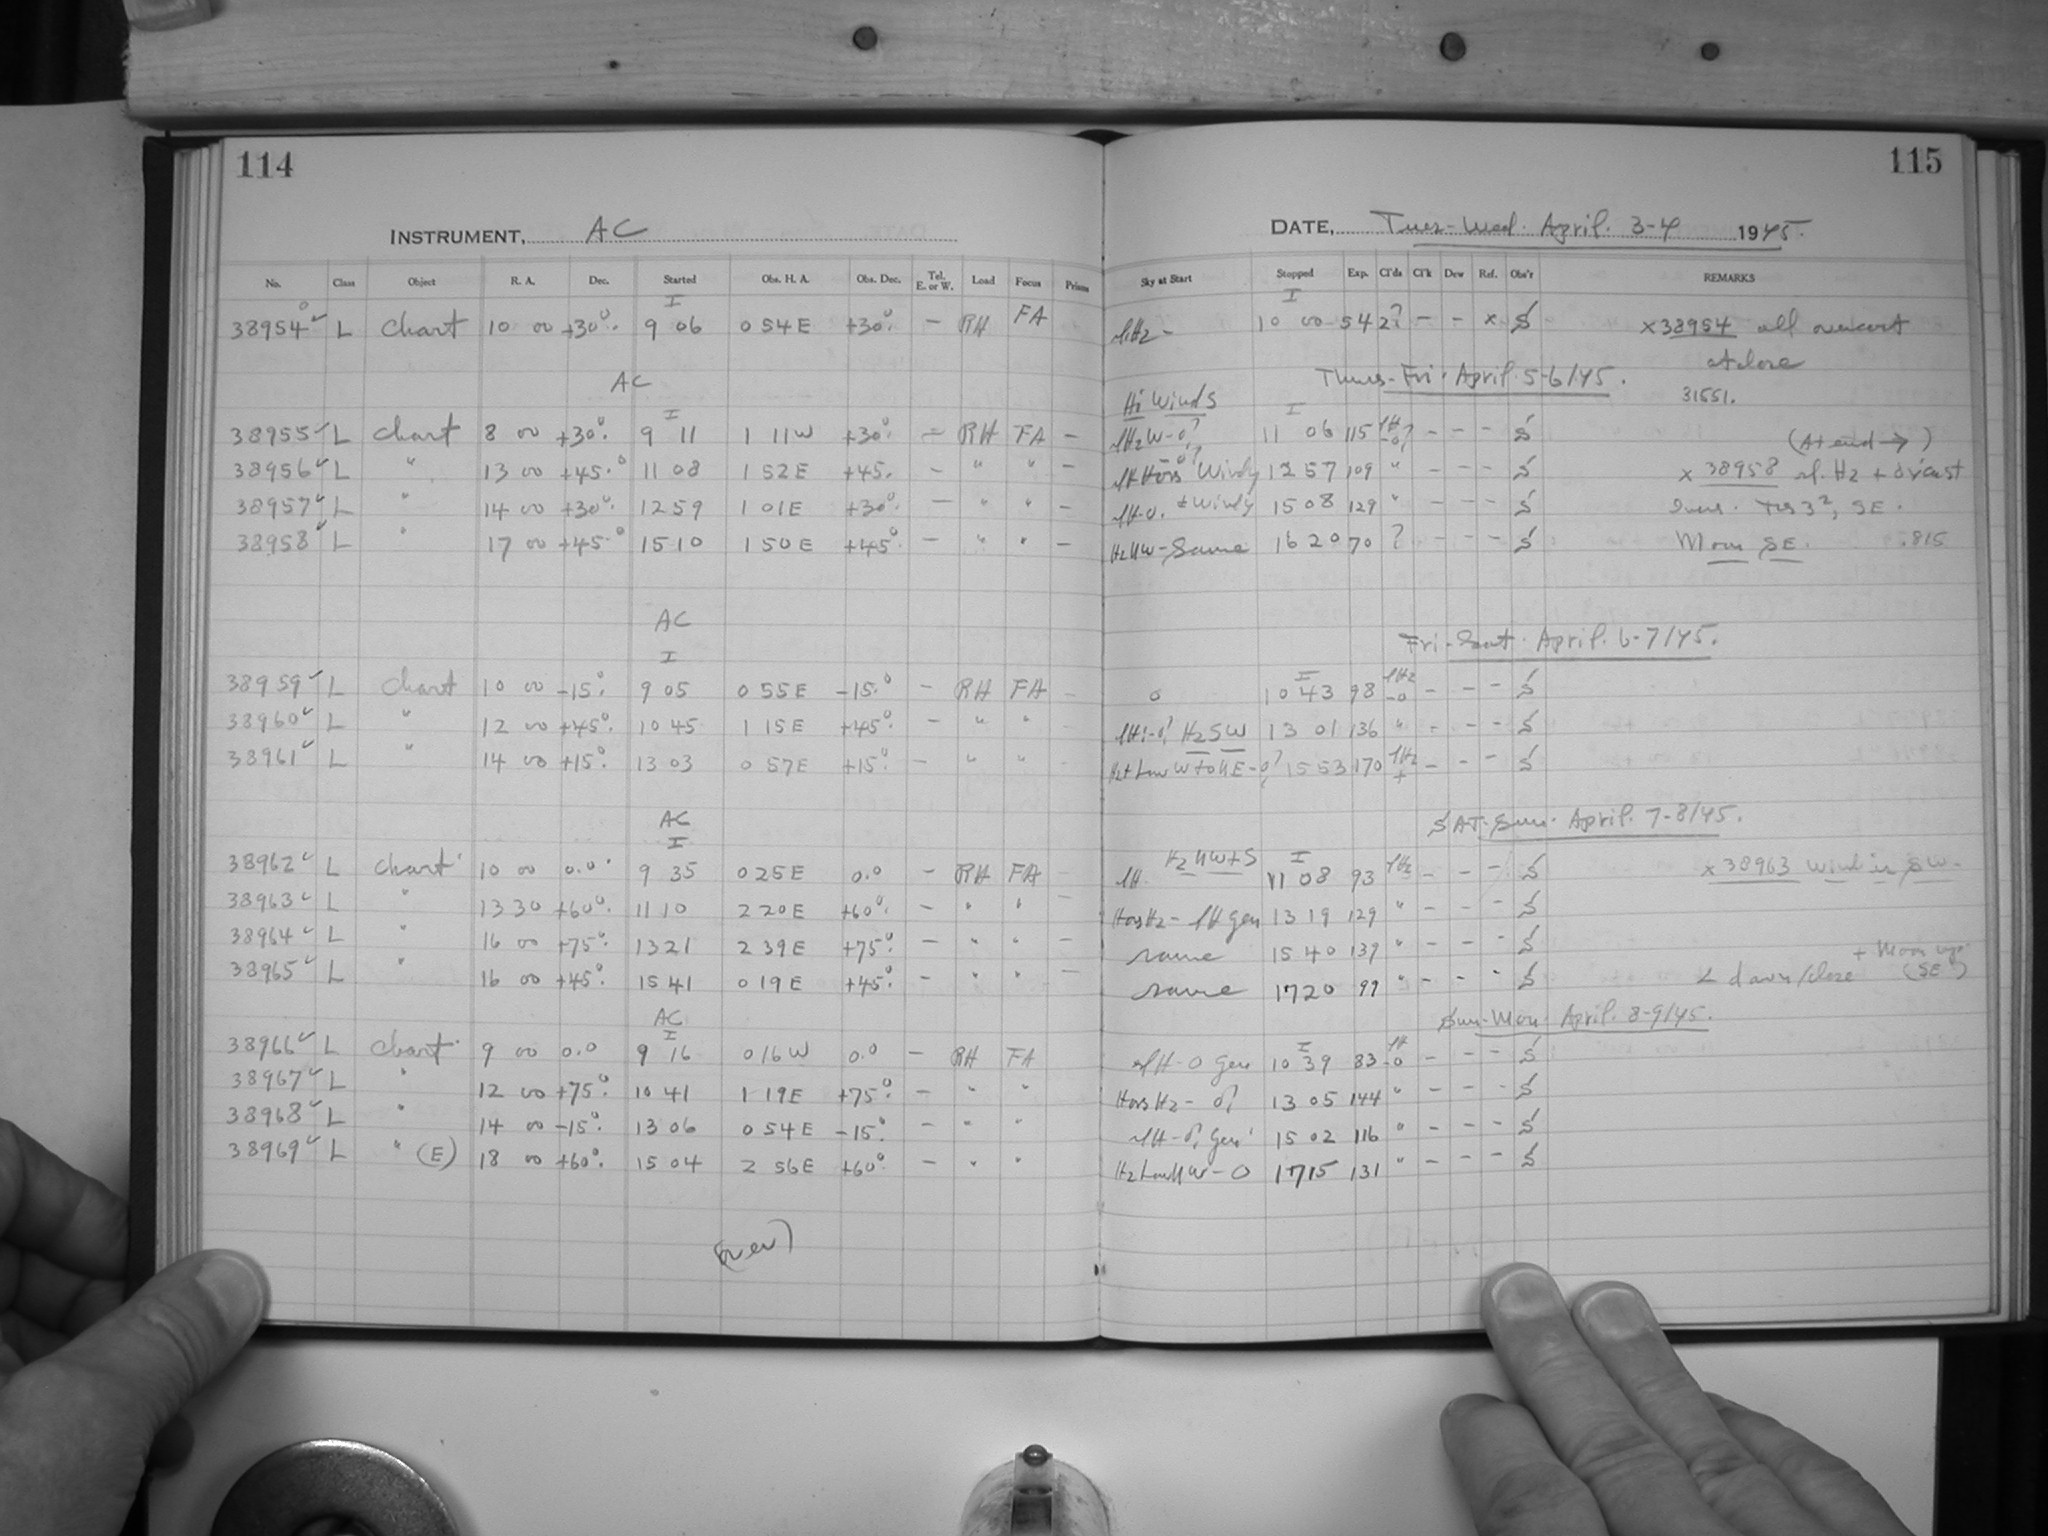 114
INSTRUMENT, AC
No. Class Object R. A. Dec. Started Obs. H. A. Obs. Dec. Tel. E. or W. Load Focus Prisms
I
38954 L Chart 10 00 +30° 9 06 0 54 E +30° - RH FA
AC
I
38955 L Chart 8 00 +30° 9 11 1 11 W +30° - RH FA -
38956 L " 13 00 +45° 11 08 1 52 E +45. - " " -
38957 L " 14 00 +30° 12 59 1 01 E +30° - " " -
38958 L " 17 00 +45° 15 10 1 50 E +45° - " " -
AC
I
38959 L Chart 10 00 -15° 9 05 0 55 E -15° - RH FA -
38960 L " 12 00 +45° 10 45 1 15 E +45° - " "
38961 L " 14 00 +15° 13 03 0 57 E +15° - " "
AC
I
38962 L Chart 10 00 0.0 9 35 0 25 E 0.0 - RH FA
38963 L " 13 30 +60° 11 10 2 20 E +60° - " " -
38964 L " 16 00 +75° 13 21 2 39 E +75° - " " -
38965 L " 16 00 +45° 15 41 0 19 E +45° - " " -
AC
I
38966 L Chart 9 00 0.0 9 16 0 16 W 0.0 - RH FA
38967 L " 12 00 +75° 10 41 1 19 E +75° - " "
38968 L " 14 00 -15° 13 06 0 54 E -15° - " "
38969 L " (E) 18 00 +60° 15 04 2 56 E +60° - " "
(over)
115
DATE, Tues-Wed. April. 3-4 1945.
Sky at Start Stopped Exp. Cl'ds Cl'k Dew Ref. Obs'r REMARKS
I
10 00 54 2? - - x S x 38954 all overcast
at close
Thurs-Fri. April. 5-6/45.
31551.
Hi Winds
I
11 06 115 - - - S (At end →)
Windy 12 57 109 " - - - S x 38958 H2 +
+ Windy 15 08 129 " - - - S SE.
Same 16 20 70 ? - - - S Moon SE. .815
Fri-Sat. April. 6-7/45.
I
0 10 43 98 - - - S
H2 SW 13 01 136 " - - - S
15 53 170 - - - S
SAT-Sun. April. 7-8/45.
H2 NW+S I
11 08 93 - - - S x 38963 Wind is SW.
Hors H2 - Gen 13 19 129 " - - - S
same 15 40 139 " - - - S + Moon up
same 17 20 99 " - - - S L dawn/close (SE)
Sun-Mon. April. 8-9/45.
I
0 Gen 10 39 83 - - - S
Hors H2 - 0? 13 05 144 " - - - S
Gen 15 02 116 " - - - S
H2 Low NW - 0 17 15 131 " - - - S